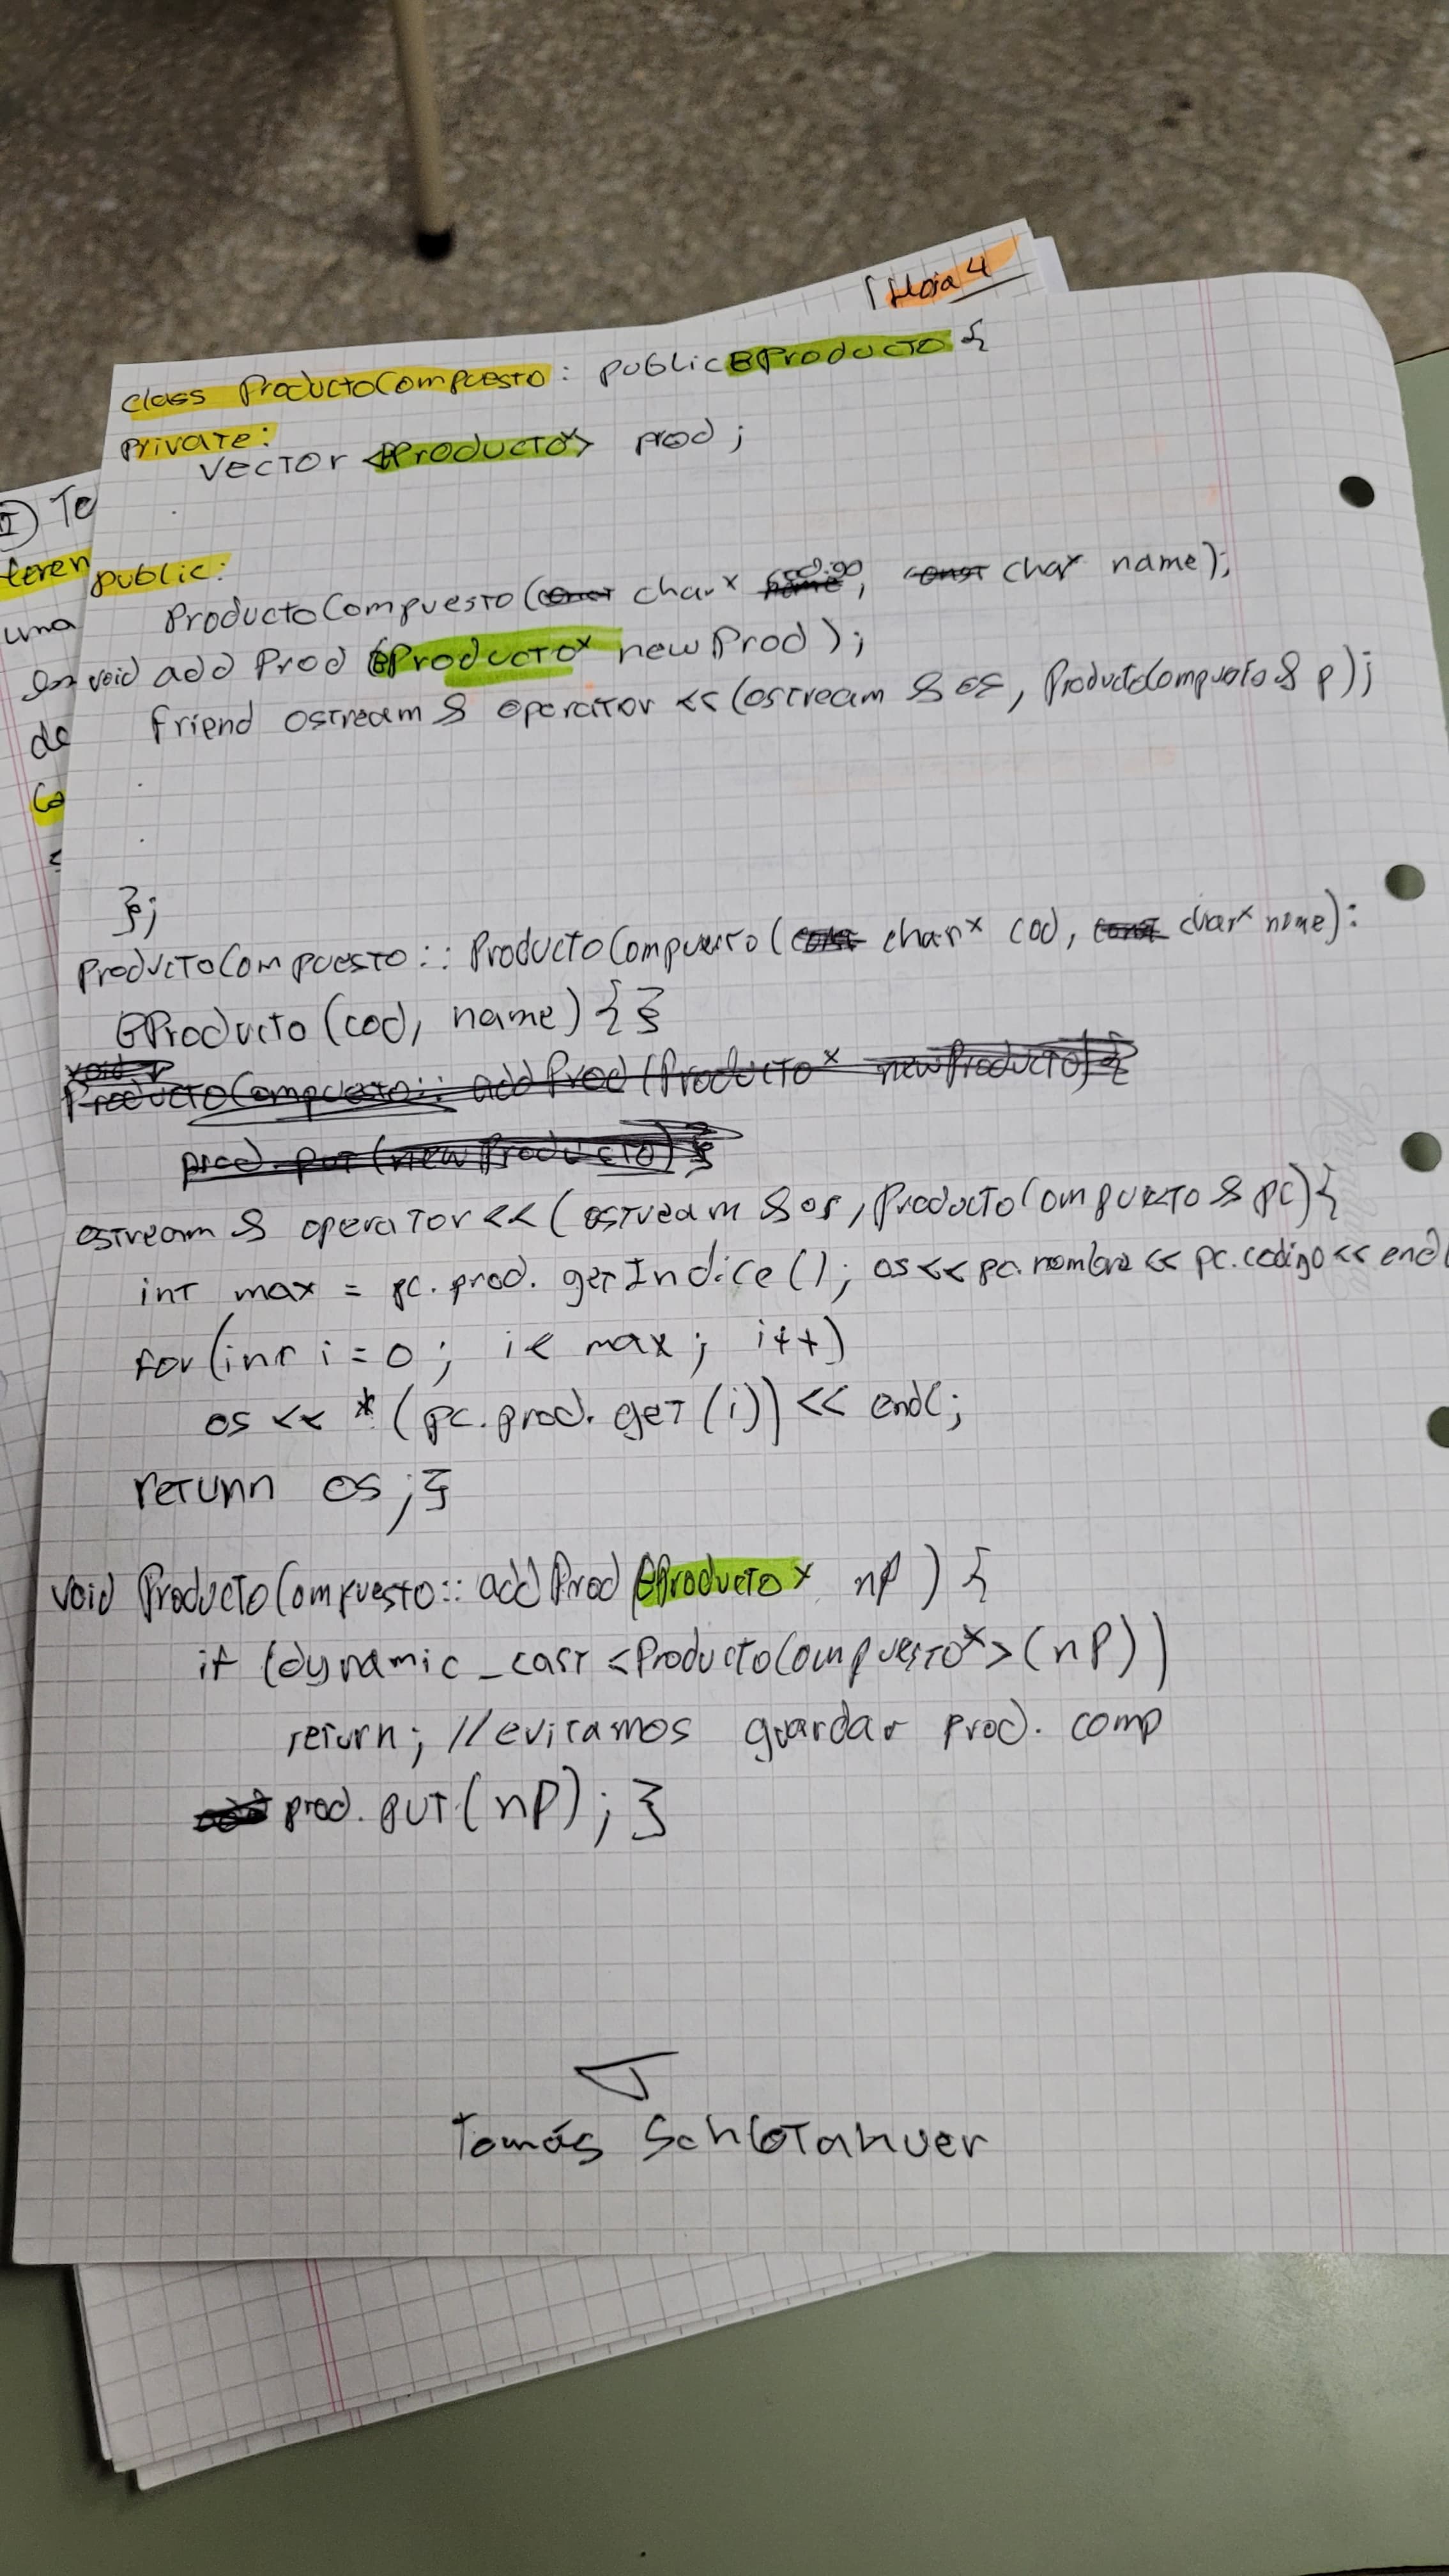 Hoja 4
class ProductoCompuesto: public BProducto {
private:
vector <BProducto*> prod;
II) Te
public:
ProductoCompuesto(const char* name codigo, const char* name);
void add Prod (BProducto* newProd);
friend ostream & operator << (ostream & os, ProductoCompuesto & p);
};
ProductoCompuesto:: ProductoCompuesto (const char* cod, const char* name):
BProducto (cod, name) {}
void
ProductoCompuesto:: add Prod (Producto* newProducto) {
prod. put (newProducto) }
ostream & operator << (ostream & os, ProductoCompuesto & pc) {
int max = pc. prod. getIndice (); os << pc. nombre << pc. codigo << endl
for (int i = 0; i < max; i++)
os << * (pc. prod. get (i)) << endl;
return os; }
void ProductoCompuesto:: add Prod (BProducto* np) {
if (dynamic_cast <ProductoCompuesto*> (np))
return; //evitamos guardar prod. comp
prod. put (np); }
Tomás Schlotahuer